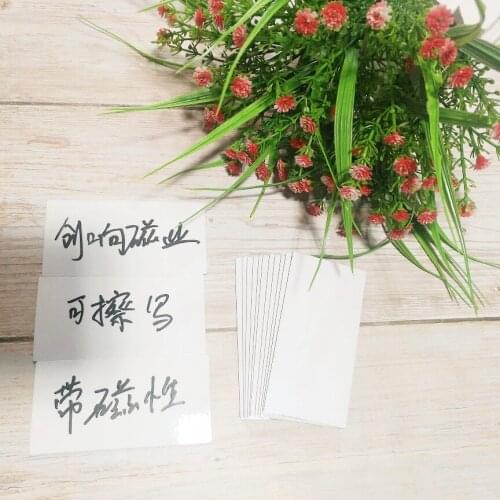 创响磁业
可擦写
带磁性